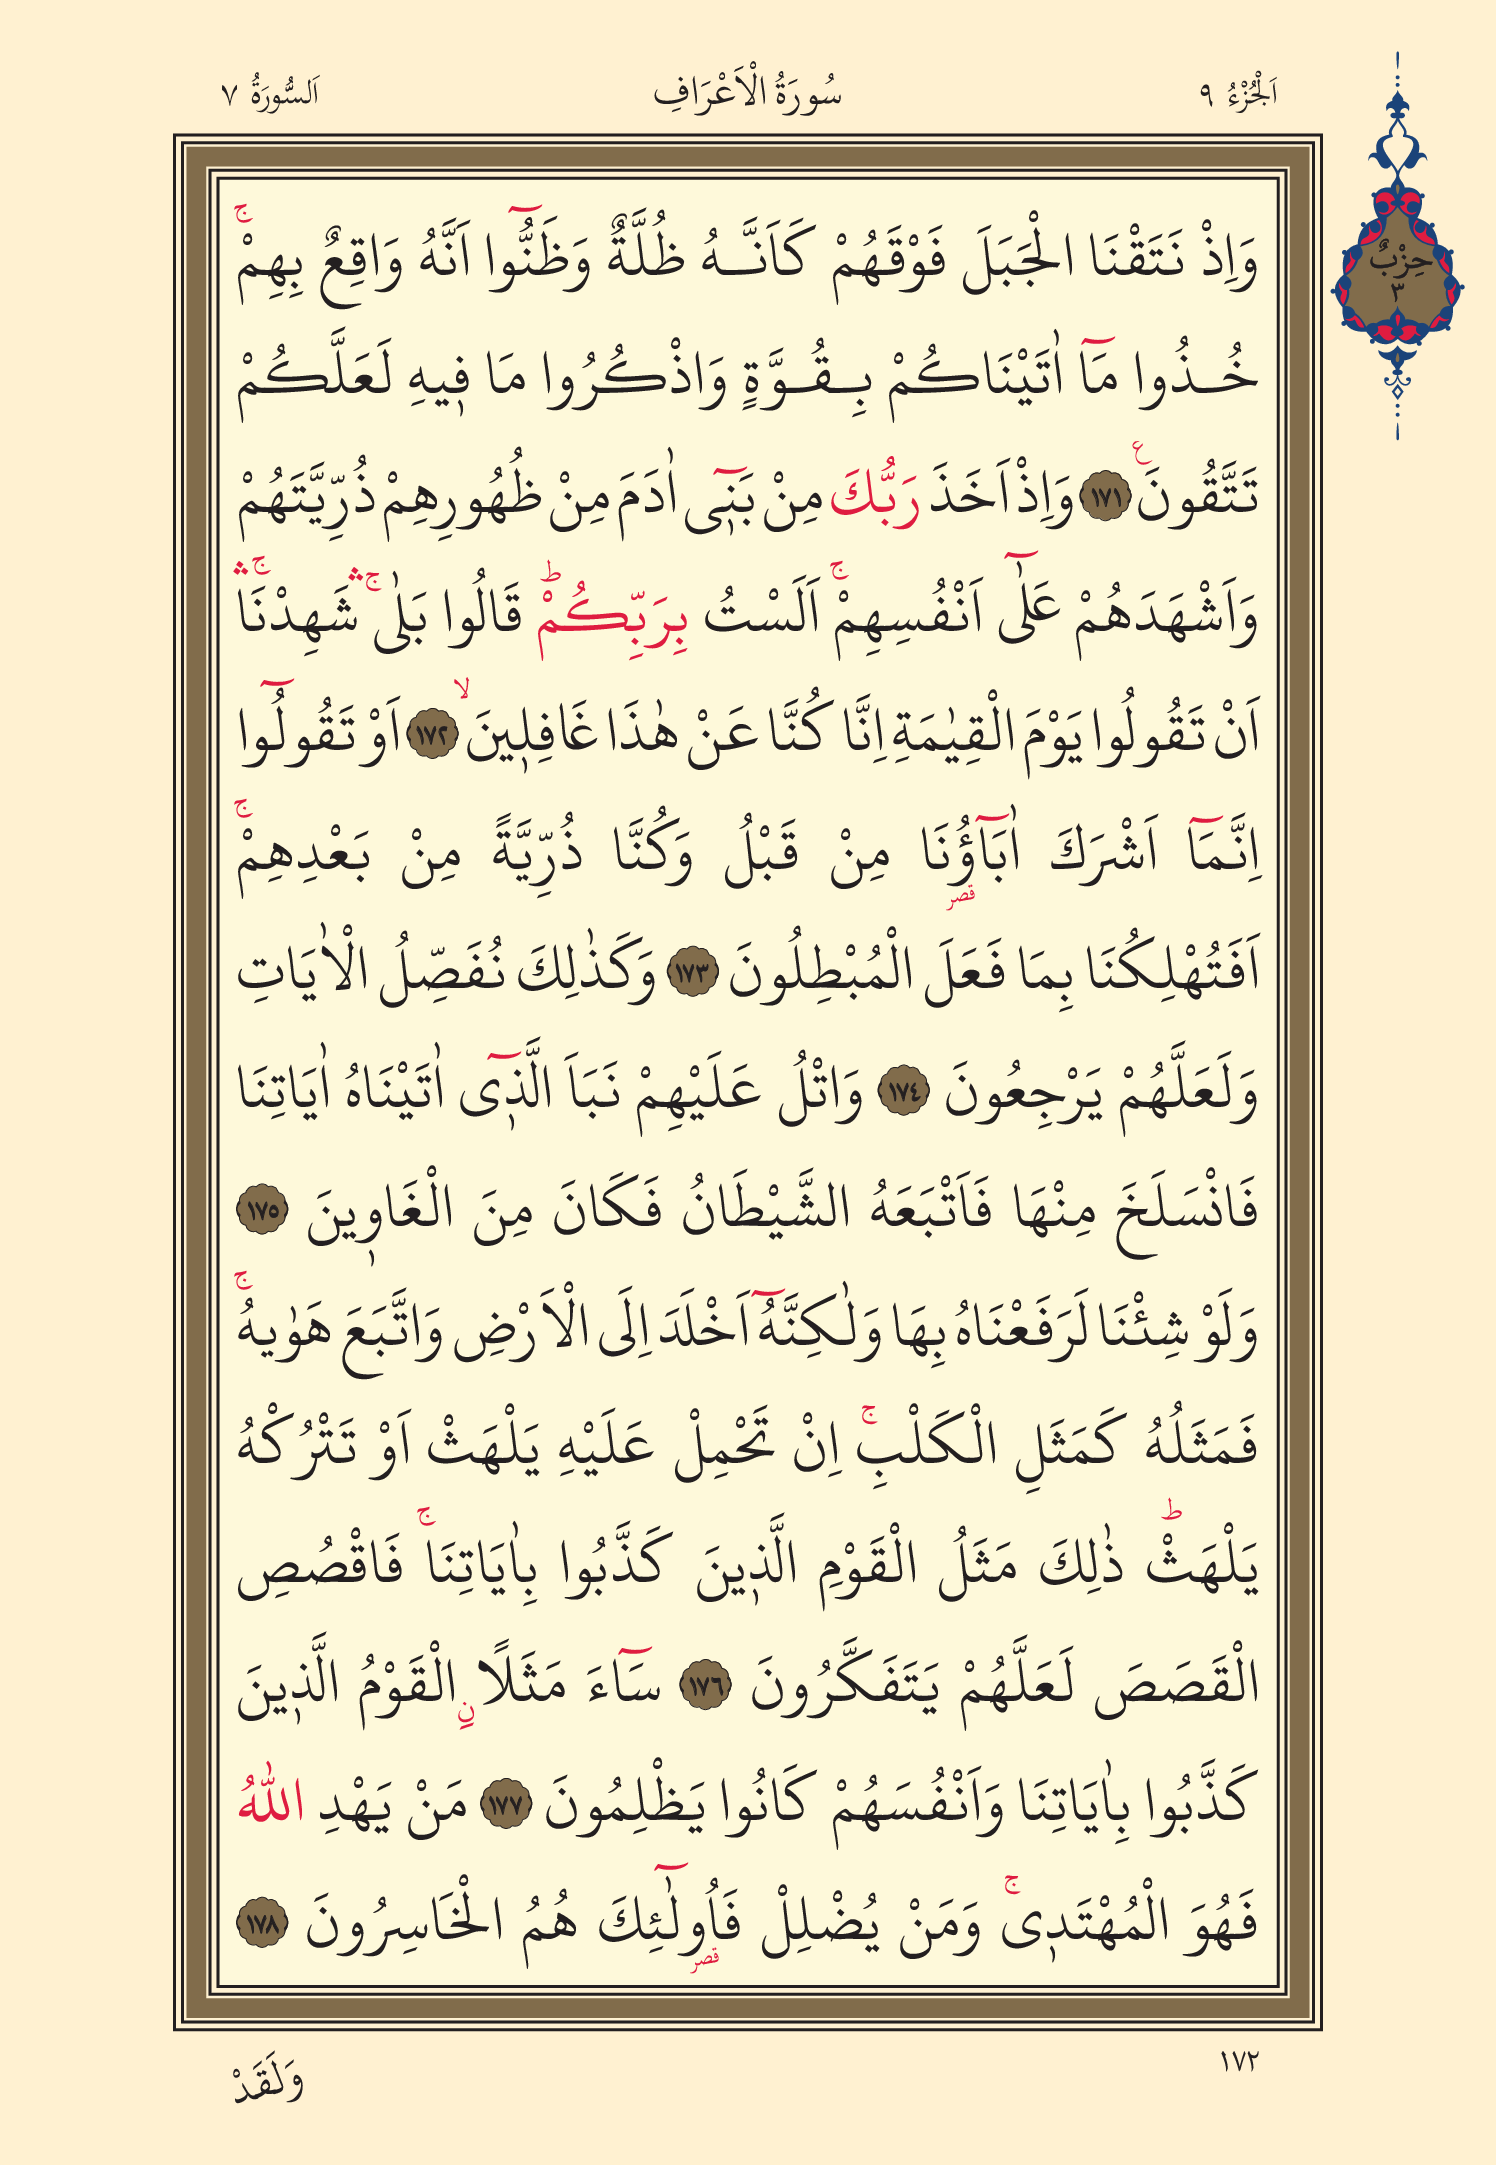 اَلْجُزْءُ ٩
سُورَةُ الْاَعْرَافِ
اَلسُّورَةُ ٧
حِزْبٌ
٣
وَاِذْ نَتَقْنَا الْجَبَلَ فَوْقَهُمْ كَاَنَّهُ ظُلَّةٌ وَظَنُّٓوا اَنَّهُ وَاقِعٌ بِهِمْۚ
خُذُوا مَٓا اٰتَيْنَاكُمْ بِقُوَّةٍ وَاذْكُرُوا مَا ف۪يهِ لَعَلَّكُمْ
تَتَّقُونَ۟ ع ﴿١٧١﴾ وَاِذْ اَخَذَ رَبُّكَ مِنْ بَن۪ٓى اٰدَمَ مِنْ ظُهُورِهِمْ ذُرِّيَّتَهُمْ
وَاَشْهَدَهُمْ عَلٰٓى اَنْفُسِهِمْۚ اَلَسْتُ بِرَبِّكُمْۜ قَالُوا بَلٰىۚۛ شَهِدْنَاۚۛ
اَنْ تَقُولُوا يَوْمَ الْقِيٰمَةِ اِنَّا كُنَّا عَنْ هٰذَا غَافِل۪ينَۙ ﴿١٧٢﴾ اَوْ تَقُولُٓوا
اِنَّمَٓا اَشْرَكَ اٰبَٓاؤُ۬نَا مِنْ قَبْلُ وَكُنَّا ذُرِّيَّةً مِنْ بَعْدِهِمْۚ
قصر
اَفَتُهْلِكُنَا بِمَا فَعَلَ الْمُبْطِلُونَ ﴿١٧٣﴾ وَكَذٰلِكَ نُفَصِّلُ الْاٰيَاتِ
وَلَعَلَّهُمْ يَرْجِعُونَ ﴿١٧٤﴾ وَاتْلُ عَلَيْهِمْ نَبَاَ الَّذ۪ٓى اٰتَيْنَاهُ اٰيَاتِنَا
فَانْسَلَخَ مِنْهَا فَاَتْبَعَهُ الشَّيْطَانُ فَكَانَ مِنَ الْغَاو۪ينَ ﴿١٧٥﴾
وَلَوْ شِئْنَا لَرَفَعْنَاهُ بِهَا وَلٰكِنَّهُٓ اَخْلَدَ اِلَى الْاَرْضِ وَاتَّبَعَ هَوٰيهُۚ
فَمَثَلُهُ كَمَثَلِ الْكَلْبِۚ اِنْ تَحْمِلْ عَلَيْهِ يَلْهَثْ اَوْ تَتْرُكْهُ
يَلْهَثْۜ ذٰلِكَ مَثَلُ الْقَوْمِ الَّذ۪ينَ كَذَّبُوا بِاٰيَاتِنَاۚ فَاقْصُصِ
الْقَصَصَ لَعَلَّهُمْ يَتَفَكَّرُونَ ﴿١٧٦﴾ سَٓاءَ مَثَلًا نِ الْقَوْمُ الَّذ۪ينَ
كَذَّبُوا بِاٰيَاتِنَا وَاَنْفُسَهُمْ كَانُوا يَظْلِمُونَ ﴿١٧٧﴾ مَنْ يَهْدِ اللّٰهُ
فَهُوَ الْمُهْتَد۪ىۚ وَمَنْ يُضْلِلْ فَاُولٰٓئِكَ هُمُ الْخَاسِرُونَ ﴿١٧٨﴾
قصر
١٧٢
وَلَقَدْ